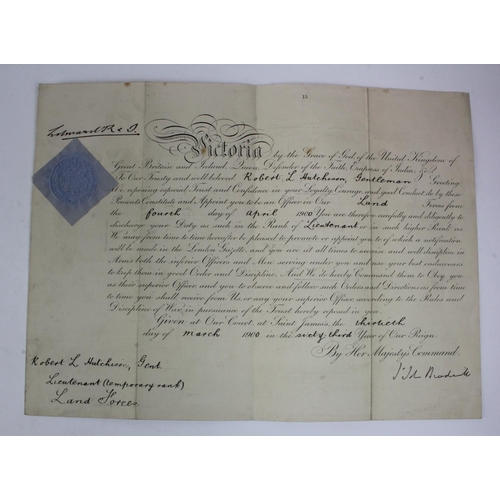 15
Edward R & I.
Victoria by the Grace of God, of the United Kingdom of
Great Britain and Ireland, Queen, Defender of the Faith, Empress of India, &c.
To Our Trusty and well beloved Robert L Hutchison, Gentleman Greeting
We, reposing especial Trust and Confidence in your Loyalty, Courage, and good Conduct, do by these
Presents Constitute and Appoint you to be an Officer in Our Land Forces from
the fourth day of April 1900 You are therefore carefully and diligently to
discharge your Duty as such in the Rank of Lieutenant or in such higher Rank as
We may from time to time hereafter be pleased to promote or appoint you to, of which a notification
will be made in the London Gazette, and you are at all times to exercise and well discipline in
Arms both the inferior Officers and Men serving under you and use your best endeavours
to keep them in good Order and Discipline. And We do hereby Command them to Obey you
as their superior Officer, and you to observe and follow such Orders and Directions as from time
to time you shall receive from Us, or any your superior Officer, according to the Rules and
Discipline of War, in pursuance of the Trust hereby reposed in you.
Given at Our Court, at Saint James's, the thirtieth
day of March 1900 in the sixty third Year of Our Reign.
By Her Majesty's Command.
Robert L Hutchison, Gent
Lieutenant (temporary rank)
Land Forces